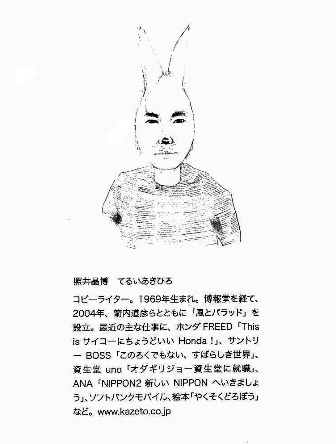 照井晶博　てるいあきひろ
コピーライター。1969年生まれ。博報堂を経て、
2004年、箭内道彦らとともに「風とバラッド」を
設立。最近の主な仕事に、ホンダ FREED「This
is サイコーにちょうどいい Honda！」、サントリ
ー BOSS「このろくでもない、すばらしき世界」、
資生堂 uno「オダギリジョー資生堂に就職」、
ANA「NIPPON2 新しい NIPPON へいきましょ
う」、ソフトバンクモバイル、絵本「やくそくどろぼう」
など。www.kazeto.co.jp